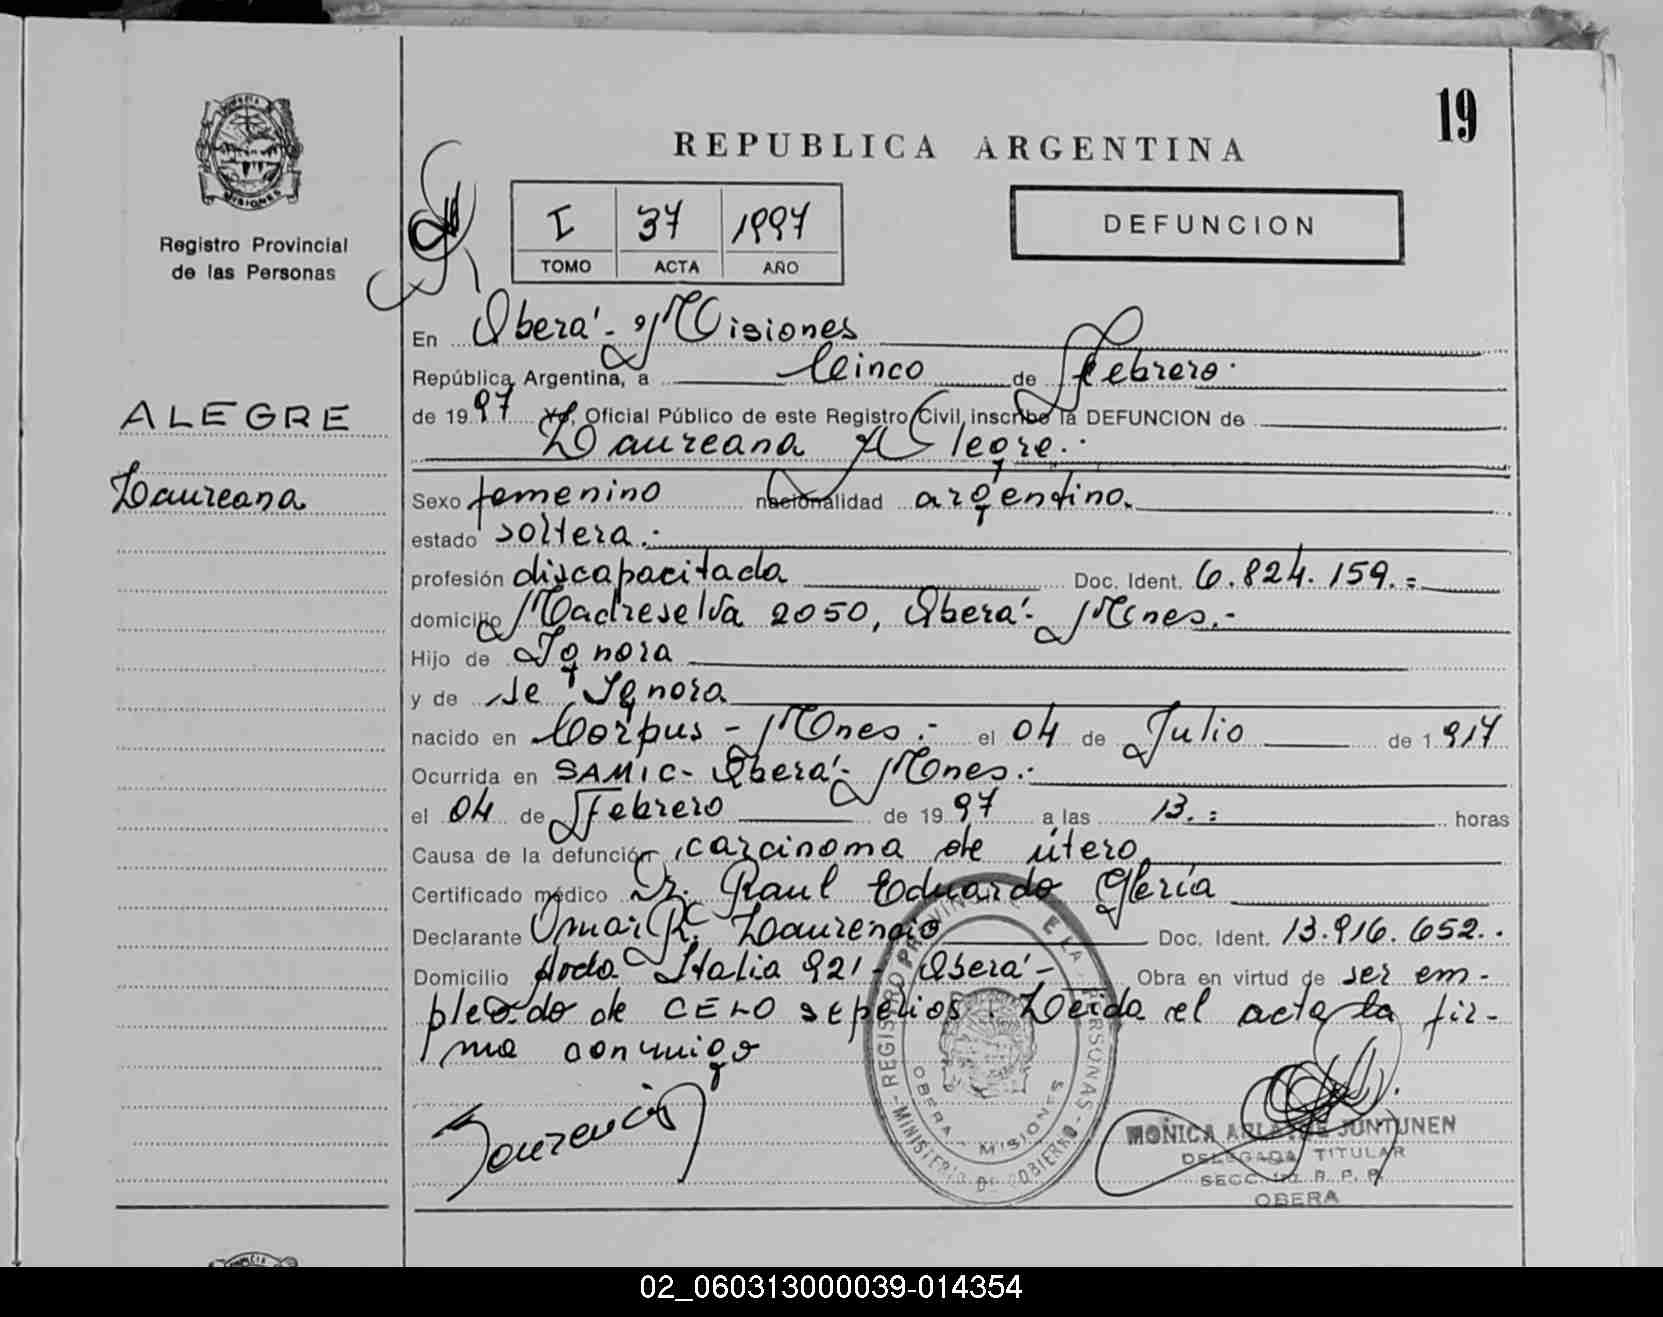 19
REPUBLICA ARGENTINA
PROVINCIA
MISIONES
Registro Provincial
de las Personas
I 37 1997
TOMO ACTA AÑO
DEFUNCION
ALEGRE
Laureana
En Oberá - Misiones
República Argentina, a Cinco de Febrero.
de 1997 Yo, Oficial Público de este Registro Civil, inscribo la DEFUNCION de
Laureana Alegre.-
Sexo femenino nacionalidad argentina.
estado soltera.-
profesión discapacitada Doc. Ident. 6.824.159.=
domicilio Madreselva 2050, Oberá - Mnes.-
Hijo de Ignora
y de se Ignora
nacido en Corpus - Mnes.- el 04 de Julio de 1.917
Ocurrida en SAMIC - Oberá - Mnes.-
el 04 de Febrero de 1997 a las 13.= horas
Causa de la defunción carcinoma de útero
Certificado médico Dr. Raul Eduardo Glería
Declarante Omar R. Laurencio Doc. Ident. 13.916.652.-
Domicilio Avda Italia 921 - Oberá - Obra en virtud de ser em-
pleado de CELO sepelios. Leida el acta la fir-
ma conmigo
Laurencio
REGISTRO PROVINCIAL DE LAS PERSONAS - MINISTERIO DE GOBIERNO -
OBERA - MISIONES
MONICA JUNTUNEN
DELEGADA TITULAR
SECC. R. P. P.
OBERA
02_060313000039-014354